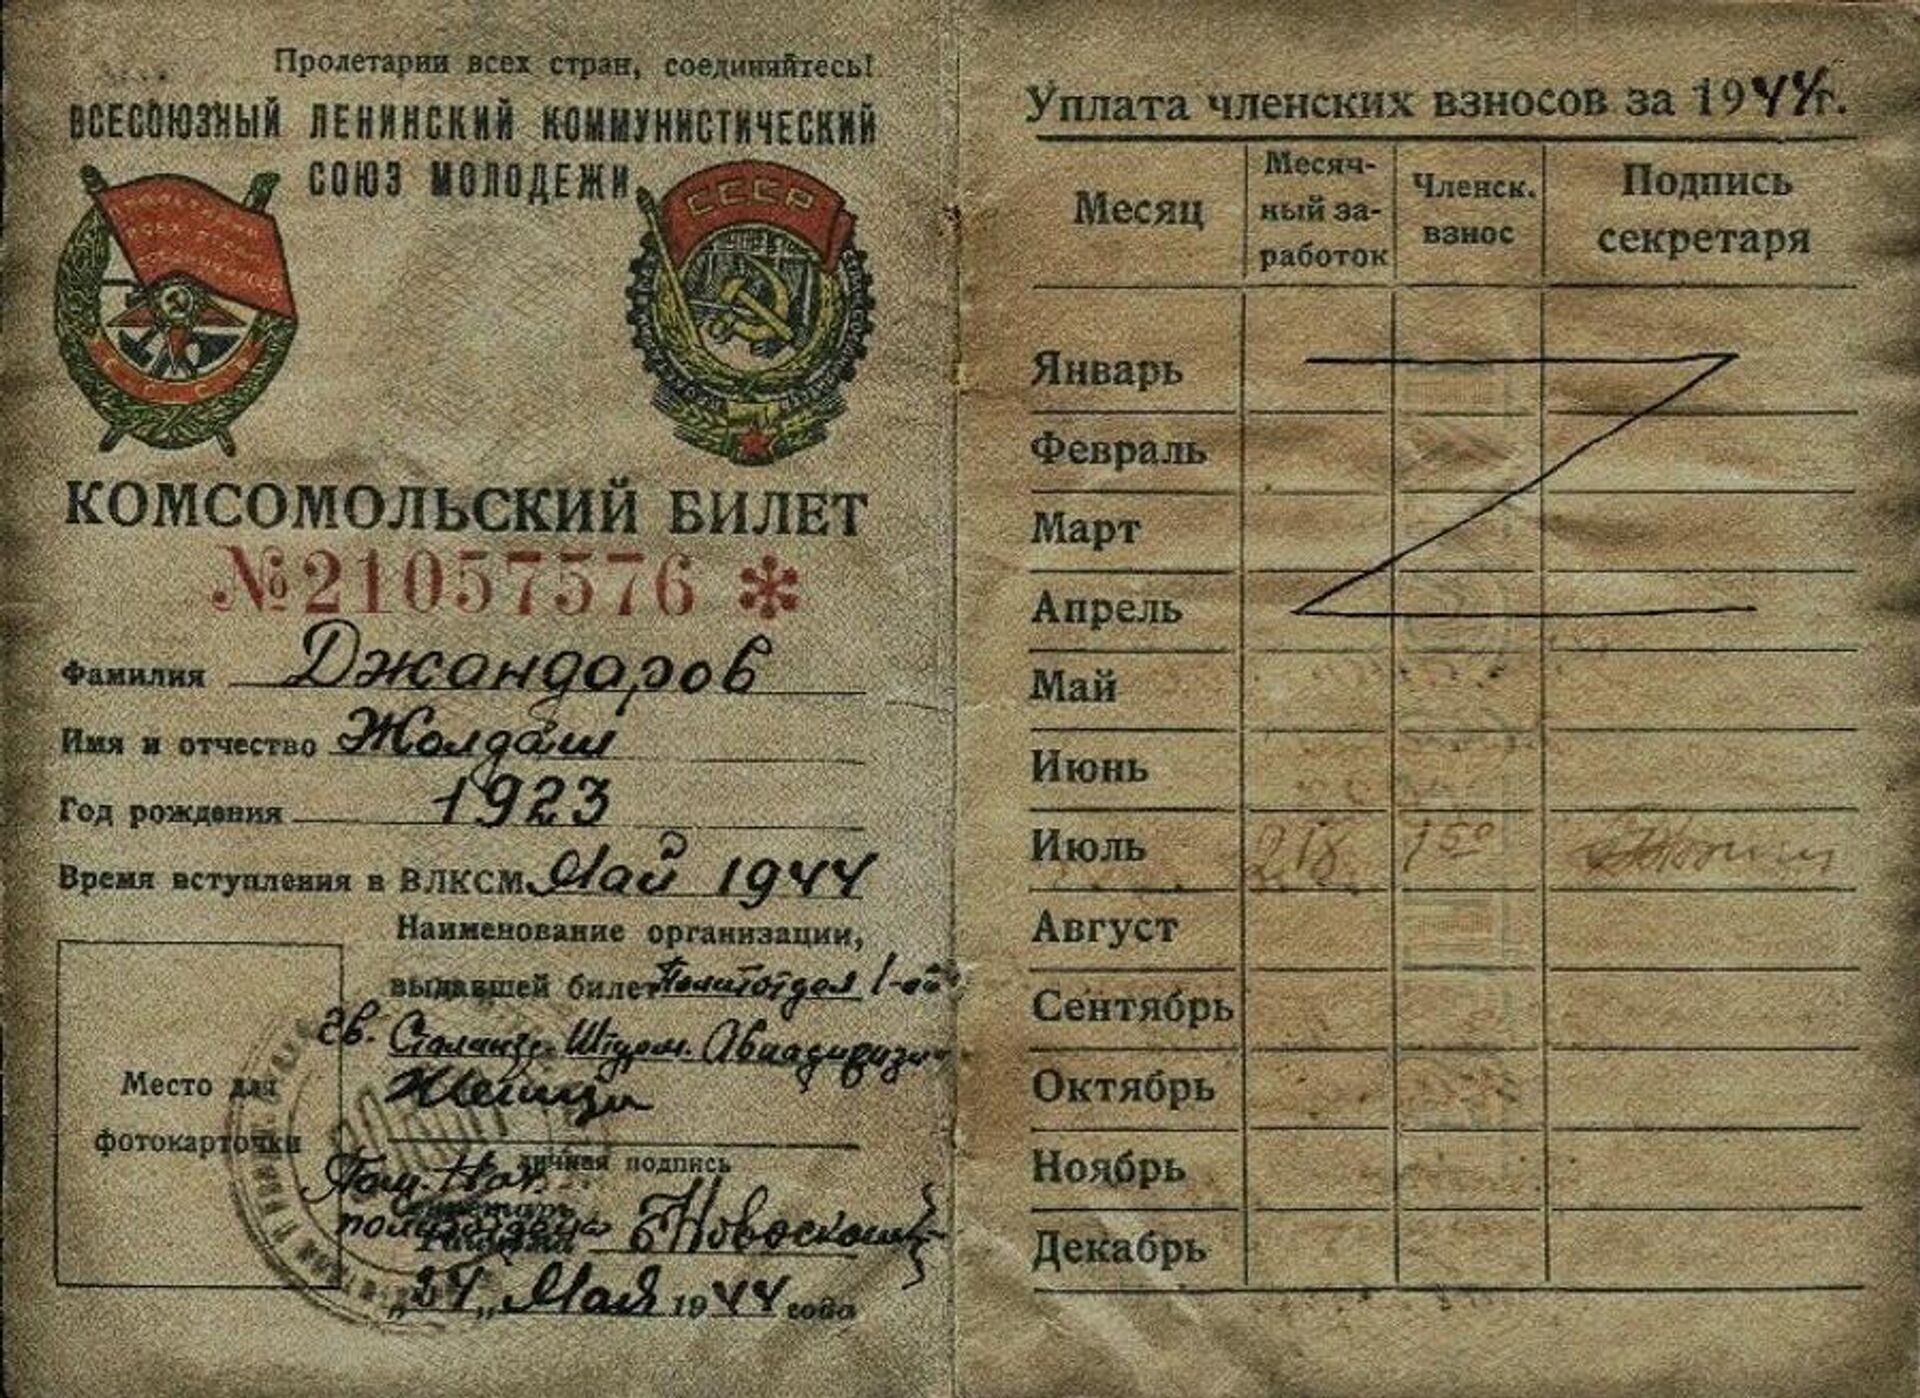 Пролетарии всех стран, соединяйтесь!
ВСЕСОЮЗНЫЙ ЛЕНИНСКИЙ КОММУНИСТИЧЕСКИЙ
СОЮЗ МОЛОДЕЖИ
СССР
КОМСОМОЛЬСКИЙ БИЛЕТ
№21057576 *
Фамилия Джандаров
Имя и отчество Жолдаш
Год рождения 1923
Время вступления в ВЛКСМ Май 1944
Наименование организации,
выдавшей билет Политотдел 1-ой
гв. Сталингр. Штурм. Авиадивизии
Место для
фотокарточки
личная подпись
Пом. Нач.
Секретарь
политотдела
Райкома
"24" Мая 1944 года
Уплата членских взносов за 1944г.
Месяц
Месяч-
ный за-
работок
Членск.
взнос
Подпись
секретаря
Январь
Февраль
Март
Апрель
Май
Июнь
Июль 218 1 50
Август
Сентябрь
Октябрь
Ноябрь
Декабрь